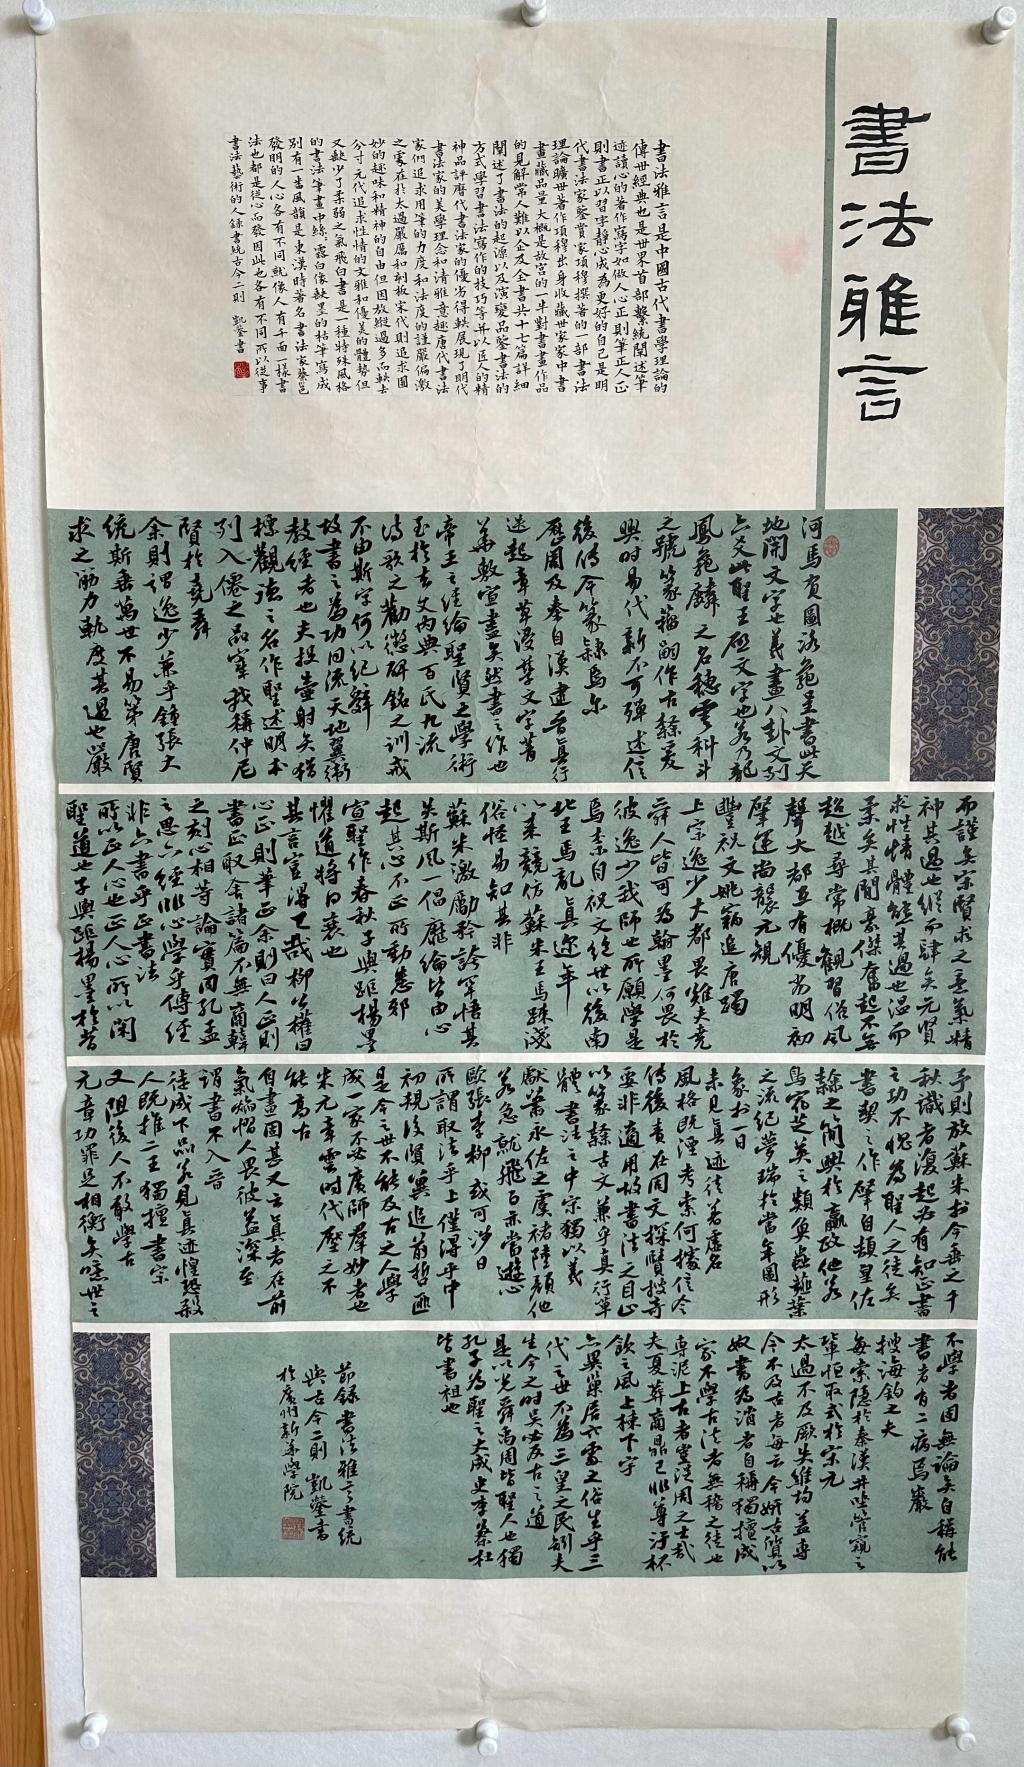 書法雅言
書法雅言是中國古代書學理論的
傳世經典也是世界首部繫統闡述筆
迹讀心的著作寫字如做人心正則筆正人正
則書正以習字靜心成為更好的自己是明
代書法家鑒賞家項穆撰著的一部書法
理論曠世著作項穆出身收藏世家家中書
畫藏品量大概是故宮的一半對書畫作品
的見解常人難以企及全書共十七篇詳細
闡述了書法的起源以及演變品鑒書法的
方式學習書法寫作的技巧等并以匠人的精
神品評曆代書法家的優劣得軼展現了明代
書法家的美學理念和清雅意趣唐代書法
家們追求用筆的力度和法度的謹嚴偏激
之處在於太過嚴厲和刻板宋代則追求圓
妙的趣味和精神的自由但因放縱過多而軼去
分寸元代追求性情的文雅和優美的體勢但
又缺少了柔弱之氣飛白書是一種特殊風格
的書法筆畫中絲絲露白像缺墨的枯筆寫成
別有一番風韻是東漢時著名書法家蔡邕
發明的人心各有不同就像人有千面一樣書
法也都是從心而發因此也各有不同所以從事
書法藝術的人錄書統古今二則 凱鎣書
河馬負圖洛龜呈書此天
地開文字也羲畫八卦文列
六爻此聖王啟文字也若乃龍
鳳龜麟之名穗雲科斗
之號篆籀嗣作古隸爰
興時易代新不可殫述信
後傳今篆隸焉爾
歷周及秦自漢逮晉真行
迭起章草浸孳文字菁
華敷宣盡矣然書之作也
帝王之經綸聖賢之學術
至於玄文內典百氏九流
詩歌之勸懲碑銘之訓戒
不由斯字何以紀辭
故書之為功同流天地翼衛
教經者也夫投壺射矢猶
標觀德之名作聖述明本
列入僊之品寧我稱仲尼
賢於堯舜
余則謂逸少兼乎鍾張大
統斯垂萬世不易第唐賢
求之筋力軌度其過也嚴
而謹矣宋賢求之意氣精
神其過也縱而肆矣元賢
求性情體態其過也温而
柔矣其間豪傑奮起不無
超越尋常概觀習俗風
聲大都互有優劣明初
肇運尚襲元規
豐祝文姚竊追唐躅
上宗逸少大都畏難夫堯
舜人皆可為翰墨何畏於
彼逸少我師也所願學是
焉奈自祝文絕世以後南
北王馬亂真邇年
以來競仿蘇米王馬疎淺
俗怪易知其非
蘇米激厲矜誇罕悟其
失斯風一倡靡綸皆由心
起其心不正所動悉邪
宣聖作春秋子輿距楊墨
懼道將日衰也
其言豈得已哉柳公權曰
心正則筆正余則曰人正則
書正取舍諸篇不無商韓
之刻心相等論實同孔孟
之思六經非心學乎傳經
非六書乎正書法
所以正人心也正人心所以閑
聖道也子輿距楊墨於昔
予則放蘇米於今垂之千
秋識者復起必有知正書
之功不愧為聖人之徒矣
書契之作肇自頡皇佐
隸之簡興於嬴政他若
鳥宿芝英之類魚蟲薤葉
之流紀夢瑞於當年圖形
象於一日
未見真迹徒著虛名
風格既湮考索何據信今
傳後責在同文探賾搜奇
要非適用故書法之目止
以篆隸古文兼乎真行草
體書法之中宗獨以羲
獻蕭永佐之虞褚陸顏他
若急就飛白亦當遊心
歐張李柳或可涉目
所謂取法乎上僅得乎中
初規後賢冀追前哲匪
是今之世不能及古之人學
成一家不必廣師羣妙者也
米元章云時代壓之不
能高古
自畫固甚又云真者在前
氣焰懾人畏彼益深至
謂書不入晉
徒成下品若見真迹惶恐殺
人既推二王獨擅書宗
又阻後人不敢學古
元章功罪足相衡矣噫世之
不學者固無論矣自稱能
書者有二病焉巖
搜海釣之夫
每索隱於秦漢井坐管窺之
輩恒取式於宋元
太過不及厥失維均蓋專
今不及古者每云今妍古質以
奴書為誚者自稱獨擅成
家不學古法者無稽之徒也
專泥上古者豈從周之士哉
夫夏葬商鼎已非尊汙杯
飲之風上棟下宇
亦異巢居穴處之俗生乎三
代之世不為三皇之民矧夫
生今之時奚必反古之道
是以堯舜禹周皆聖人也獨
孔子為聖之大成史李蔡杜
皆書祖也
節錄書法雅言書統
與古今二則 凱鎣書
於廣州新華學院